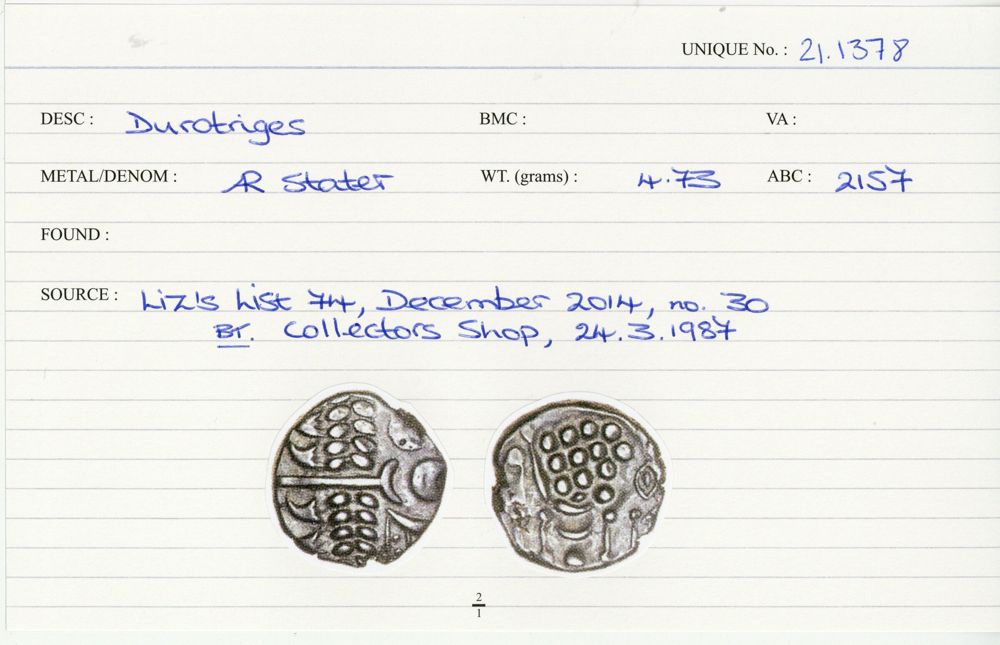 UNIQUE No. : 21.1378
DESC : Durotriges BMC : VA :
METAL/DENOM : AR Stater WT. (grams) : 4.73 ABC : 2157
FOUND :
SOURCE : Liz's List 74, December 2014, no. 30
BT. Collectors Shop, 24.3.1987
2
1